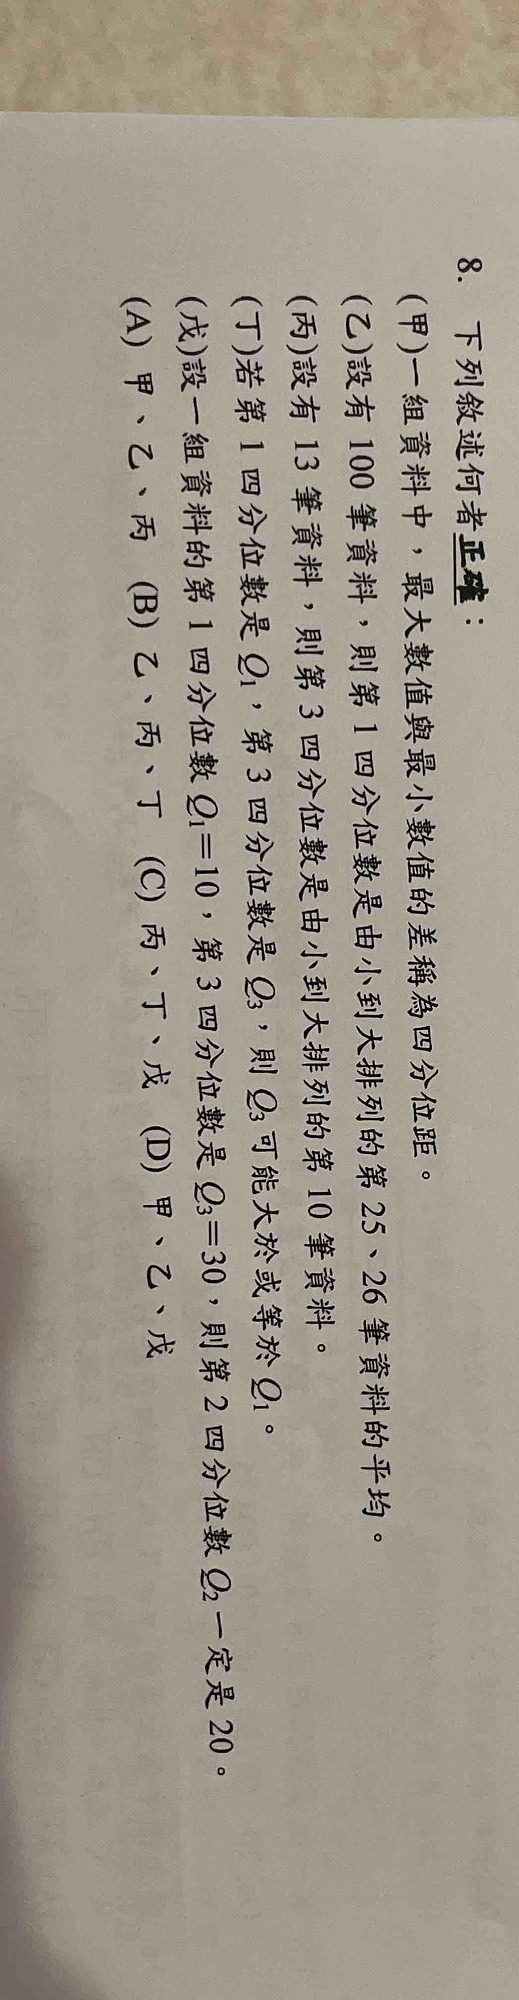 8. 下列敘述何者正確：
(甲)一組資料中，最大數值與最小數值的差稱為四分位距。
(乙)設有 100 筆資料，則第 1 四分位數是由小到大排列的第 25、26 筆資料的平均。
(丙)設有 13 筆資料，則第 3 四分位數是由小到大排列的第 10 筆資料。
(丁)若第 1 四分位數是 Q₁，第 3 四分位數是 Q₃，則 Q₃ 可能大於或等於 Q₁。
(戊)設一組資料的第 1 四分位數 Q₁=10，第 3 四分位數是 Q₃=30，則第 2 四分位數 Q₂ 一定是 20。
(A) 甲、乙、丙 (B) 乙、丙、丁 (C) 丙、丁、戊 (D) 甲、乙、戊